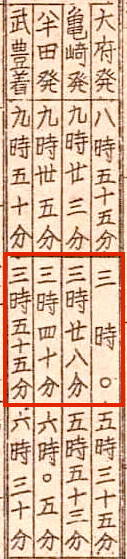 大府発 八時五十五分 三時〇 五時三十五分
亀崎発 九時廿三分 三時廿八分 五時五十三分
半田発 九時廿五分 三時四十分 六時〇五分
武豊着 九時五十分 三時五十五分 六時三十分